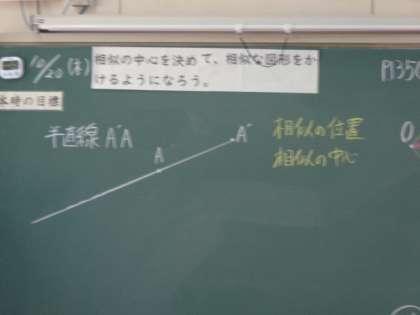 10/20(木)
相似の中心を決めて、相似な図形をか
けるようになろう。
P135
本時の目標
半直線 A"A
A
A"
相似の位置
相似の中心
O